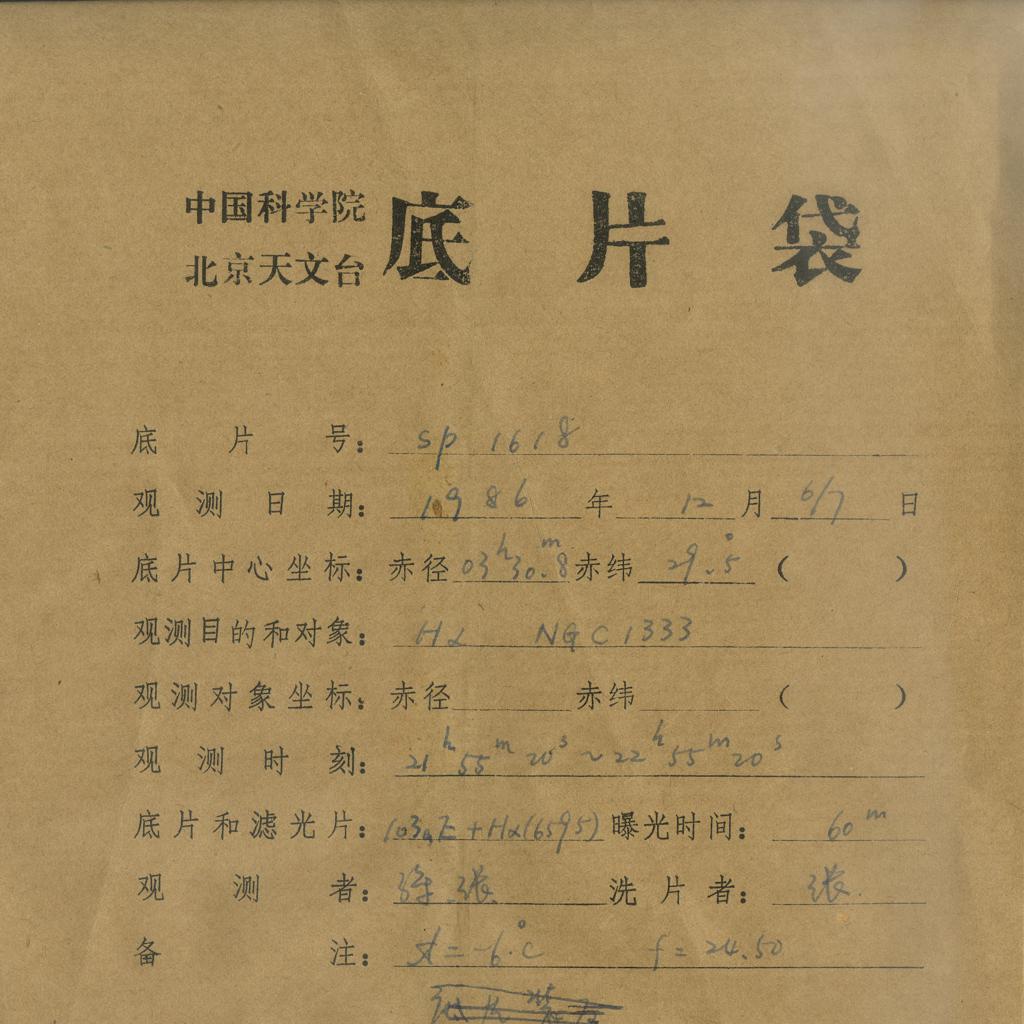 中国科学院
北京天文台
底片袋
底片号： sp 1618
观测日期： 1986 年 12 月 6/7 日
底片中心坐标：赤径 03h30m.8 赤纬 29°.5 （ ）
观测目的和对象： Hα NGC1333
观测对象坐标：赤径 赤纬 （ ）
观测时刻： 21h55m20s ~ 22h55m20s
底片和滤光片： 103aE+Hα(6595) 曝光时间： 60m
观测者： 张 洗片者： 张
备注： =-6°C f=24.50